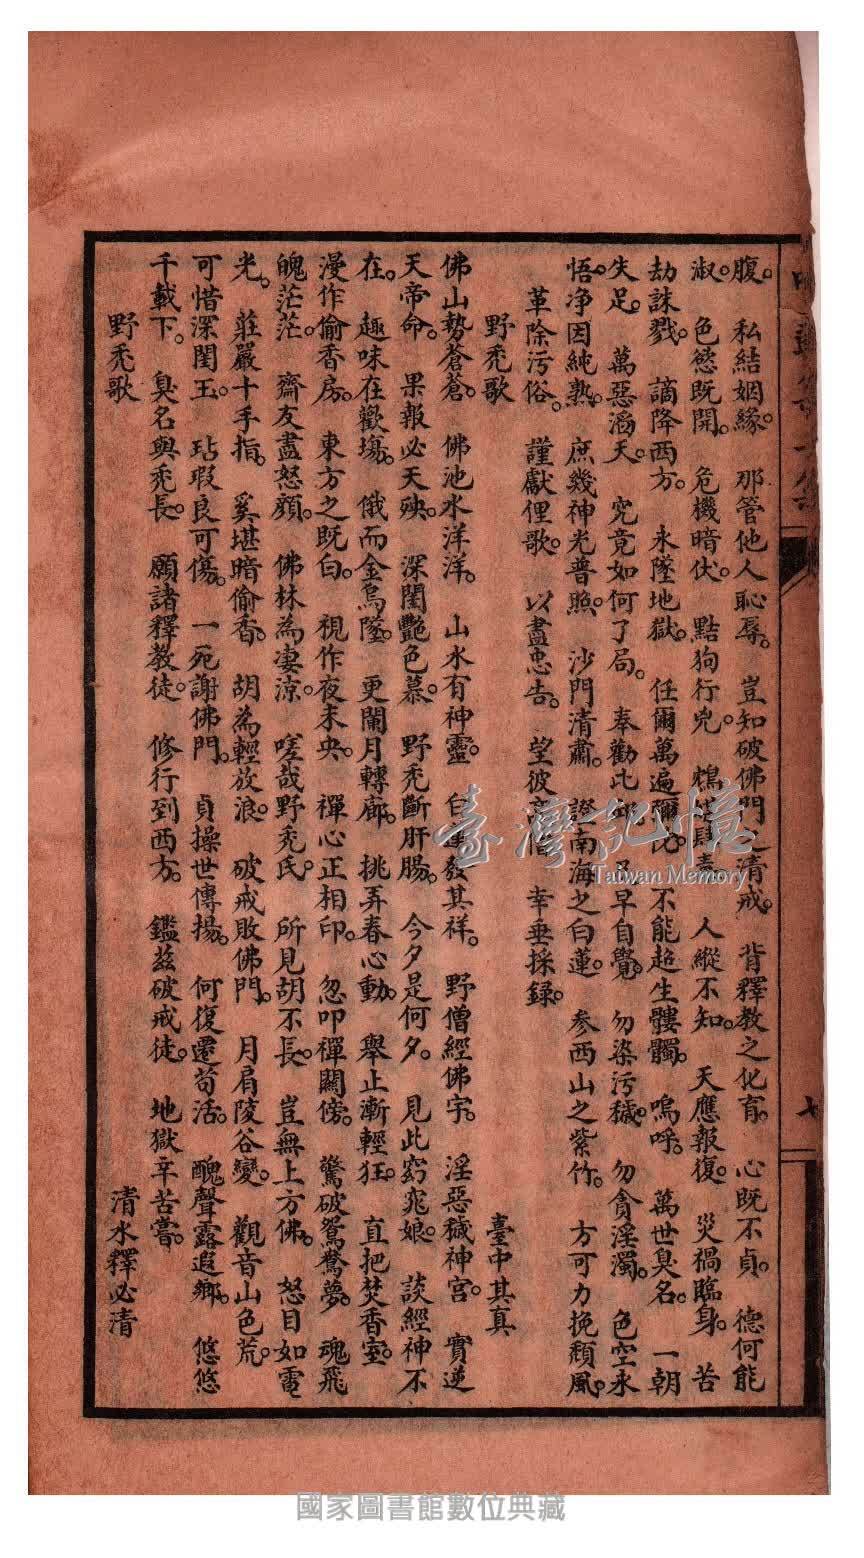 腹。私結姻緣。那管他人恥辱。豈知破佛門之清戒。背釋教之化育。心既不貞。德何能
淑。色慾既開。危機暗伏。點狗行兇。鴆 人縱不知。天應報復。災禍臨身。苦
劫誅戮。謫降西方。永墜地獄。任爾萬遍彌陀。不能超生髏髑。嗚呼。萬世臭名。一朝
失足。萬惡滔天。究竟如何了局。奉勸比邱 早自覺。勿染污穢。勿貪淫濁。色空永
悟。净因純熟。庶幾神光普照。沙門清肅。證南海之白蓮。參西山之紫竹。方可力挽頹風。
革除污俗。謹獻俚歌。以盡忠告。望彼高僧。幸垂採録。
野禿歌 臺中其真
佛山勢蒼蒼。佛池水洋洋。山水有神靈。白蓮發其祥。野僧經佛宇。淫惡穢神宮。實逆
天帝命。果報必天殃。深閨艷色慕。野禿斷肝腸。今夕是何夕。見此窈窕娘。談經神不
在。趣味在歡塲。俄而金烏墜。更闌月轉廊。挑弄春心動。舉止漸輕狂。直把焚香室。
漫作偷香房。東方之既白。視作夜未央。禪心正相印。忽叩禪關傍。驚破鴛鴦夢。魂飛
魄茫茫。齋友盡怒顏。佛林為凄涼。嗟哉野禿氏。所見胡不長。豈無上方佛。怒目如電
光。莊嚴十手指。奚堪暗偷香。胡為輕放浪。破戒敗佛門。月眉陵谷變。觀音山色荒。
可惜深閨玉。玷瑕良可傷。一死謝佛門。貞操世傳揚。何復還苟活。醜聲露遐鄉。悠悠
千載下。臭名與禿長。願諸釋教徒。修行到西方。鑑茲破戒徒。地獄辛苦嘗。
野禿歌 清水釋必清
七
臺灣記憶
Taiwan Memory
國家圖書館數位典藏